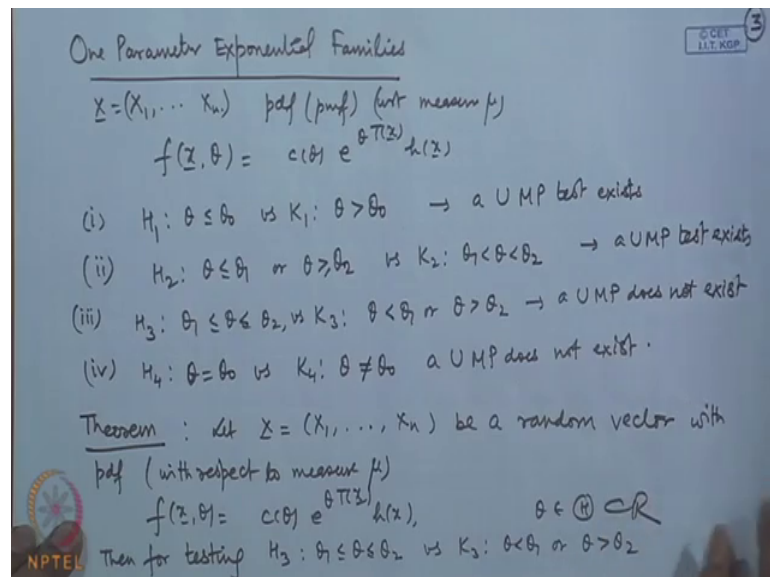 3
© CET
I.I.T. KGP
One Parameter Exponential Families
X = (X₁, ... Xₙ) pdf (pmf) (wrt measure μ)
f(x, θ) = c(θ) e^{θ T(x)} h(x)
(i) H₁ : θ ≤ θ₀ vs K₁ : θ > θ₀ → a UMP test exists
(ii) H₂ : θ ≤ θ₁ or θ ≥ θ₂ vs K₂ : θ₁ < θ < θ₂ → a UMP test exists
(iii) H₃ : θ₁ ≤ θ ≤ θ₂, vs K₃ : θ < θ₁ or θ > θ₂ → a UMP does not exist
(iv) H₄ : θ = θ₀ vs K₄ : θ ≠ θ₀ a UMP does not exist.
Theorem : Let X = (X₁, ..., Xₙ) be a random vector with
pdf (with respect to measure μ)
f(x, θ) = c(θ) e^{θ T(x)} h(x), θ ∈ Ⓗ ⊂ R
Then for testing H₃ : θ₁ ≤ θ ≤ θ₂ vs K₃ : θ < θ₁ or θ > θ₂
NPTEL